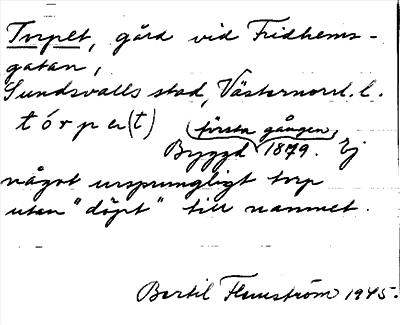 Torpet, gård vid Fridhems-
gatan,
Sundsvalls stad, Västernorrl. l.
tórpe(t) (första gången,
Byggd 1879. Ej
något ursprungligt torp
utan "döpt" till namnet.
Bertil Flemström 1945.